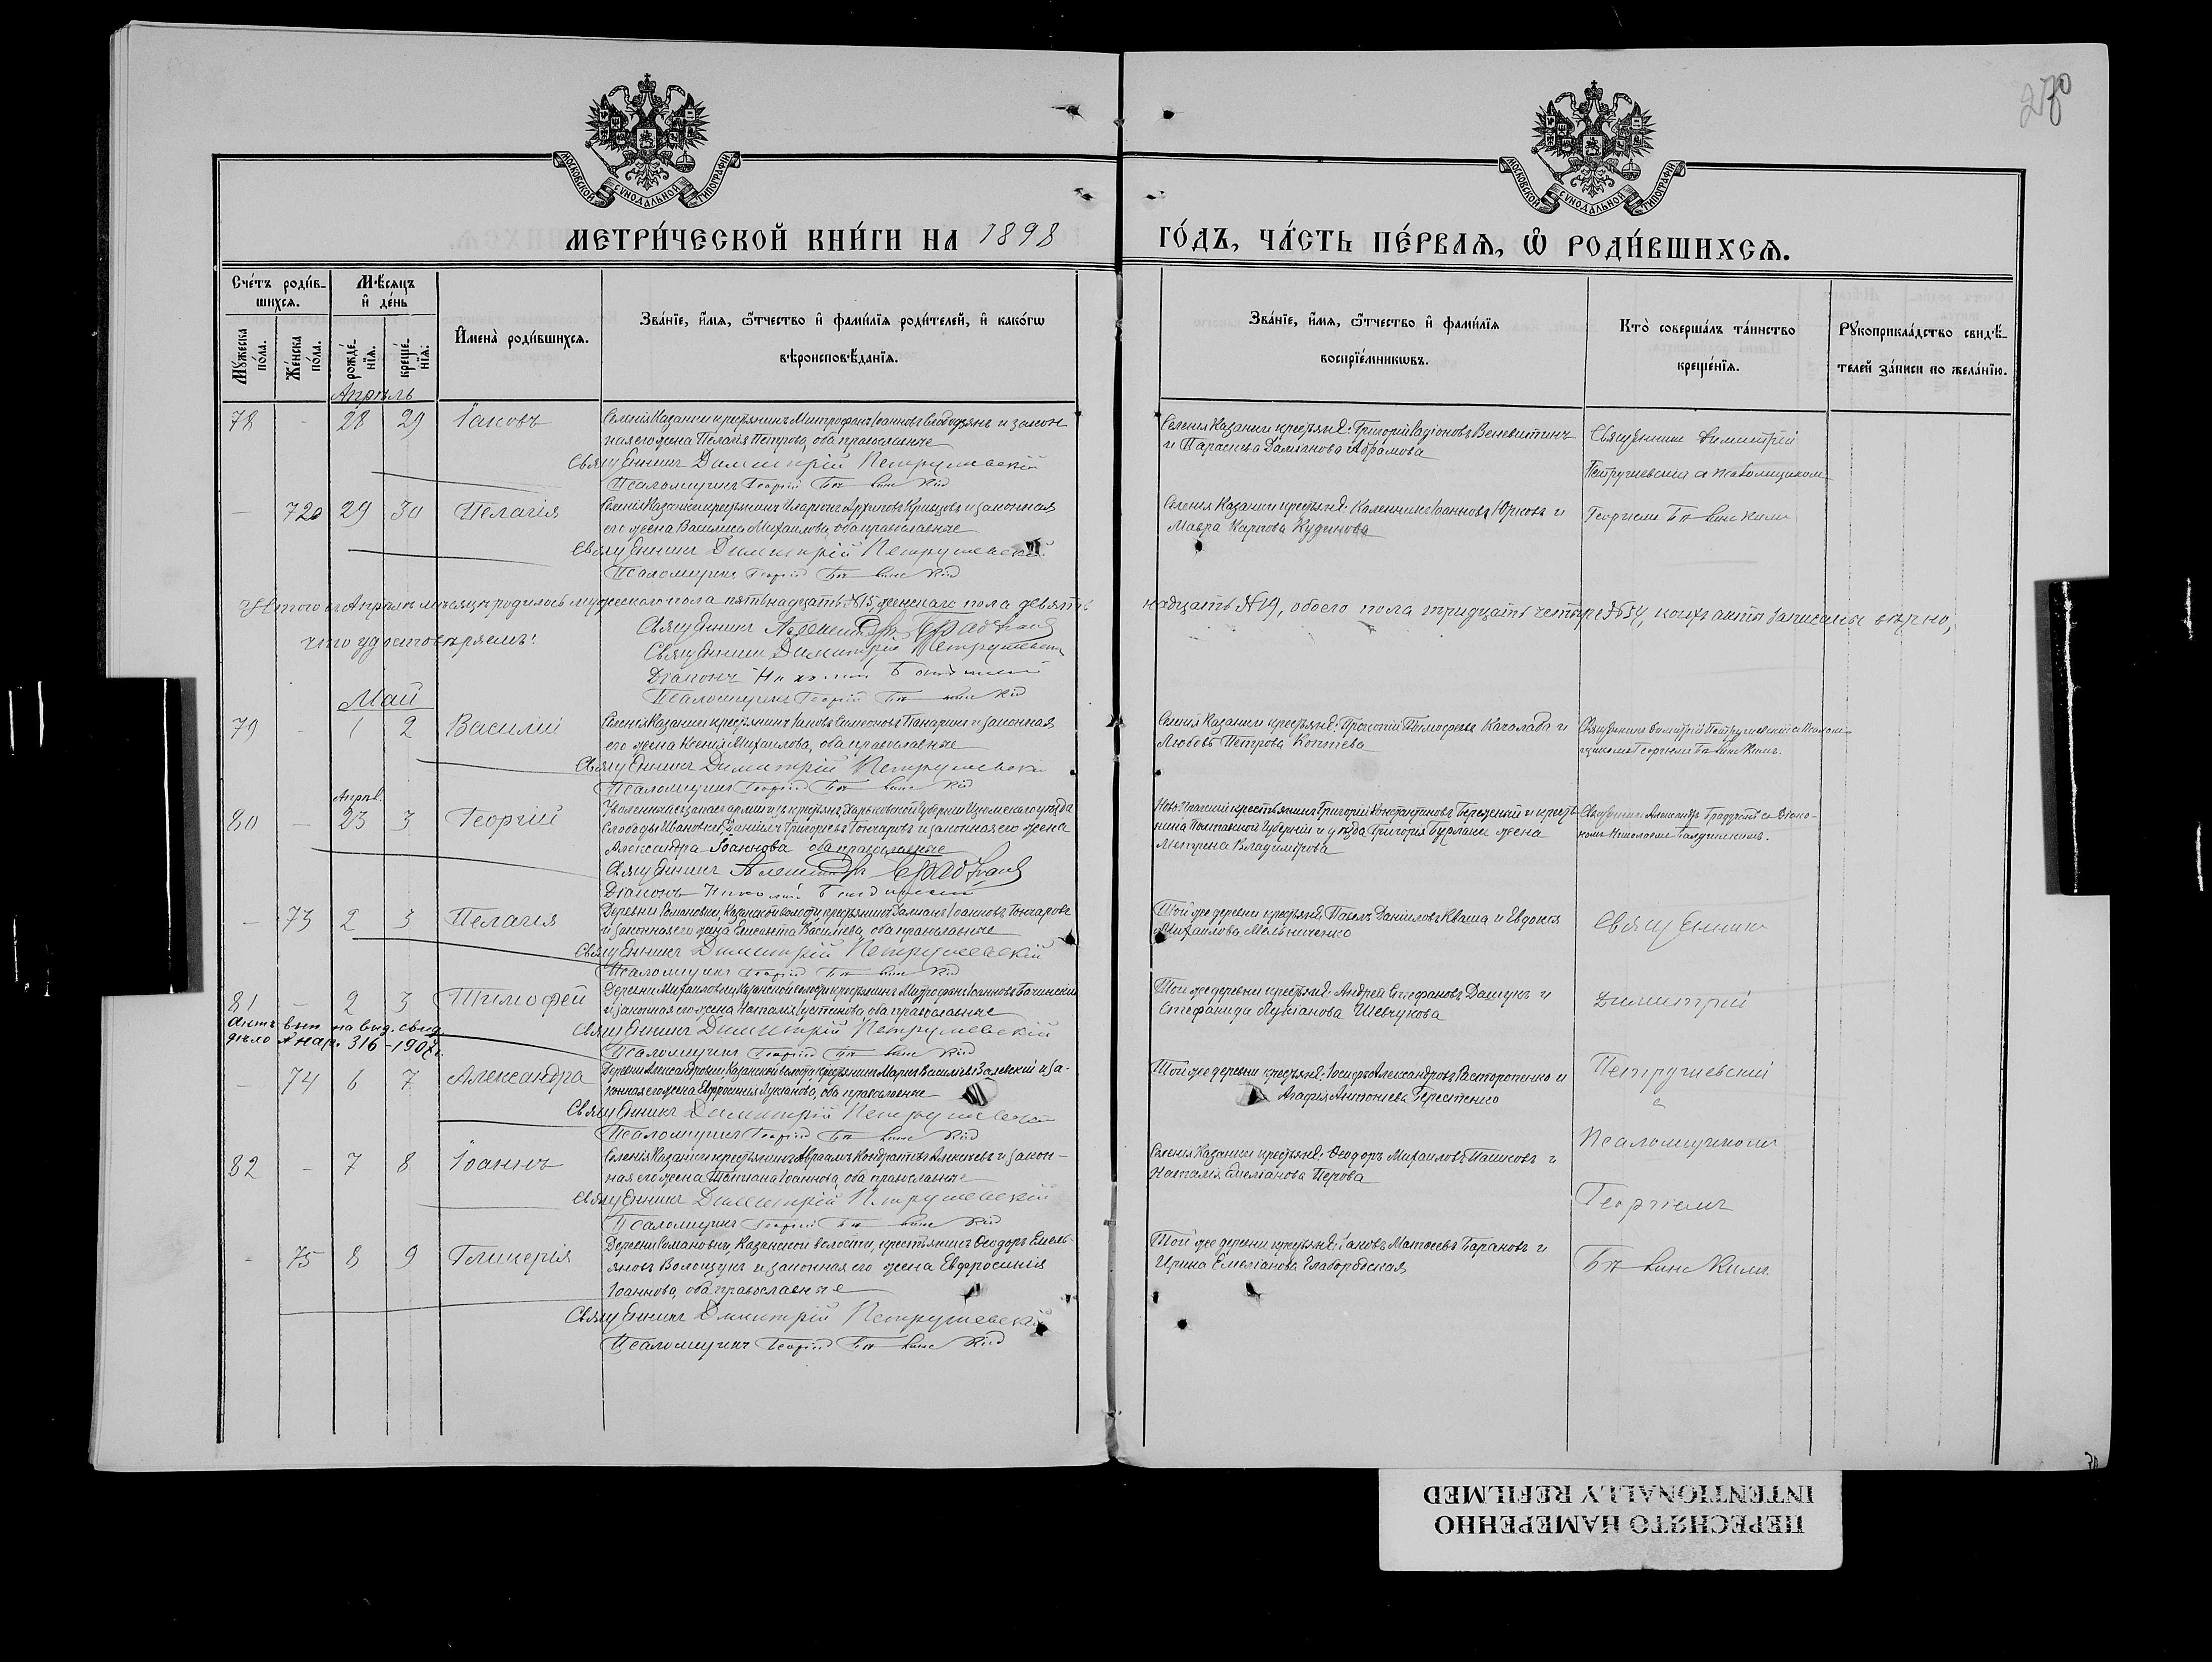 270
МОСКОВСКОЙ СУНОДАЛЬНОЙ ТИПОГРАФІИ
МОСКОВСКОЙ СУНОДАЛЬНОЙ ТИПОГРАФІИ
МЕТРИ́ЧЕСКОЙ КНИ́ГИ НА 1898
ГО́ДЪ, ЧА́СТЬ ПЕ́РВАѦ, Ѡ РОДИ́ВШИХСѦ.
Сче́тъ роди́в-
шихсѧ.
Му́жеска по́ла.
Же́нска по́ла.
Мѣ́сяцъ
и҆ де́нь
рожде́-
нїѧ.
креще́-
нїѧ.
И҆мена̀ роди́вшихсѧ.
Зва́нїе, и҆́мѧ, ѻ҆́тчество и҆ фами́лїѧ роди́телей, и҆ како́гѡ
вѣроисповѣ́данїѧ.
Зва́нїе, и҆́мѧ, ѻ҆́тчество и҆ фами́лїѧ
воспрїе́мникѡвъ.
Кто̀ соверша́лъ та́инство
креще́нїѧ.
Рꙋкоприкла́дство свидѣ́-
телей за́писи по жела́нїю.
Апрѣль
78 - 28 29 Іаковъ
Селенія Казанки крестьянинъ Митрофанъ Іоанновъ и закон
ная его жена Пелагія Петрова, оба православные
Священникъ Димитрій Петрушевскій
Псаломщикъ Георгій
Селенія Казанки крестьяне: Григорій Радіоновъ Веневитинъ
и Параскева Даміанова Абрамова
Священникъ Димитрій
Петрушевскій съ псаломщикомъ
— 72 29 30 Пелагія
Селенія Казанки крестьянинъ Иларіонъ Архиповъ и законная
его жена Василиса Михаилова, оба православные
Священникъ Димитрій Петрушевскій
Псаломщикъ Георгій
Селенія Казанки крестьяне: Каленникъ Іоанновъ Юрковъ и
Мавра Карпова Кудинова
Георгіемъ
Итого въ Апрѣлѣ мѣсяцѣ родилось мужескаго пола пятьнадцать № 15, женскаго пола девять
надцать № 19, обоего пола тридцать четыре № 34, коихъ акты записаны вѣрно,
что удостовѣряемъ:
Священникъ Александръ
Священникъ Димитрій Петрушевскій
Діаконъ Николай
Псаломщикъ Георгій
Май
79 - 1 2 Василій
Селенія Казанки крестьянинъ Іаковъ Симеоновъ Панаринъ и законная
его жена Ксенія Михаилова, оба православные
Священникъ Димитрій Петрушевскій
Псаломщикъ Георгій
Селенія Казанки крестьяне: Тимофеевъ Качалаба и
Любовь Петрова Коптева
Священникъ Димитрій Петрушевскій съ Псалом-
щикомъ Георгіемъ
Апрѣл.
80 — 23 3 Георгій
Уволенный въ запасъ арміи изъ крестьянъ Харьковской губерніи Изюмскаго уѣзда
Слободы Ивановки, Даніилъ Григорьевъ Гончаровъ и законная его жена
Александра Іоаннова оба православные
Священникъ Александръ
Діаконъ Николай
крестьянинъ Григорій Константиновъ Бережный и крестья-
нина Полтавской губерніи и уѣзда Григорія Бурлаки жена
Матрена Владимірова
Священникъ Александръ съ Діако-
номъ Николаемъ
— 73 2 3 Пелагія
Деревни Романовки, Казанской волости, крестьянинъ Даміанъ Іоанновъ Гончаровъ
и законная его жена Васильева, оба православные
Священникъ Димитрій Петрушевскій
Псаломщикъ Георгій
Той же деревни крестьяне: Павелъ Даніиловъ Кваша и Евдокія
Михаилова Мельниченко
Священникъ
81 — 2 3 Тимофей
Деревни Михаиловки, Казанской волости крестьянинъ Митрофанъ Іоанновъ Бачинскій
и законная его жена Наталія Іустинова, оба православные
Священникъ Димитрій Петрушевскій
Псаломщикъ Георгій
Актъ вып. на выд. свид.
дѣло нар. 316 - 1907 г.
Той же деревни крестьяне: Андрей Стефановъ Дашукъ и
Стефанида Лукіанова Шевчукова
Димитрій
- 74 6 7 Александра
Деревни Александровки, Казанской волости крестьянинъ Маркъ Васильевъ и за-
конная его жена Евфросинія Лукіанова, оба православные
Священникъ Димитрій Петрушевскій
Псаломщикъ Георгій
Той же деревни крестьяне: Іосифъ Александровъ Расторопенко и
Агафія Антоніева Терещенко
Петрушевскій
съ
Псаломщикомъ
82 - 7 8 Іоаннъ
Селенія Казанки крестьянинъ Авраамъ Кондратьевъ Алексѣевъ и закон-
ная его жена Татіана Іоаннова, оба православные
Священникъ Димитрій Петрушевскій
Псаломщикъ Георгій
Селенія Казанки крестьяне: Ѳеодоръ Михаиловъ Пашковъ и
Наталія Емеліанова Перова
Георгіемъ
- 75 8 9 Гликерія
Деревни Романовки, Казанской волости, крестьянинъ Ѳеодоръ Емель-
яновъ Волощукъ и законная его жена Евфросинія
Іоаннова, оба православные
Священникъ Димитрій Петрушевскій
Псаломщикъ Георгій
Той же деревни крестьяне: Іаковъ Матѳеевъ Барановъ и
Ирина Емеліанова Слабородская
ПЕРЕСНЯТО НАМЕРЕННО
INTENTIONALLY REFILMED